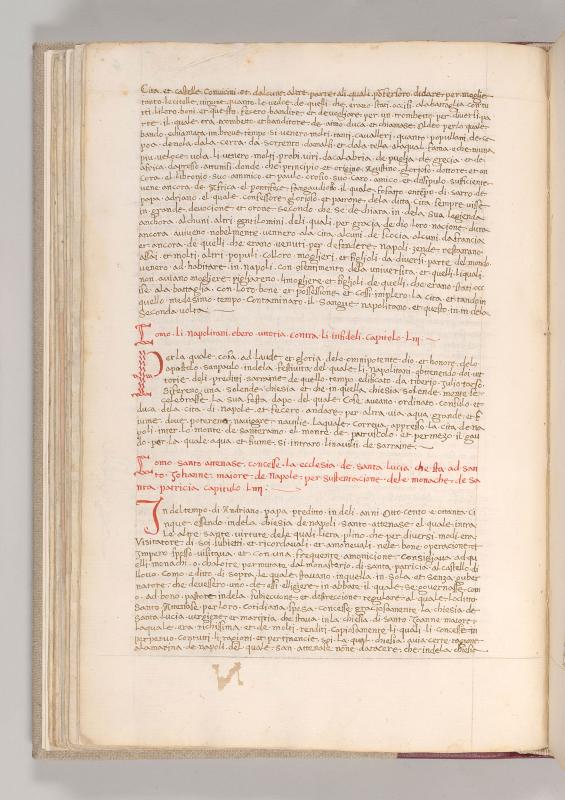 Cita et castelle conuicini et dalcune altre parte ali quali poterloro didare per moglie
tanto le citelle uirgine quanto le uedoe de quelli che erano stati occisi ala battaglia con tu
tti li loro boni et questo fecero bandire et deuegliare per un trombetta per diuersi pa
rte il quale era trombetti et banditore de
bando chiamata im breue tempo si uenero molti tanti caualleri quanto populani de ca
poa denola dala cerra da sorrento damalfi et dala tella dala qual fama che uinia
piu ueloce uola li uenero molti probi uiri dacalabria de puglia de grecia et de
africa dapresso donde che principio et origine Agustino glorioso dottore et an
cora el libronio suo amico et paulo orosio suo caro amico et discipulo
vene ancora de Africa el pontifece il quale tempo di
papa adriano el quale confessore glorioso et patrone dela ditta Cita sempre uisse
in grande deuocione et orone secondo che se dechiara in dela sua legienda
anchora alchuni altri gentilomini deli quali per gracia de dio loro nacione dura
ancora auiueno nobelmente uennero ala cita alcuni de scocia alcuni dafrancia
et ancora de quelli che erano uenuti per defendere napoli zende restarano
assai et molti altri populi colloro moglieri et figlioli da diuersi parte del mondo
venero ad habitare in napoli con ostentimento dela uniuersita et quelli liquali
non auiano mogliere pigliareno limogliere et figlioli de quelli che erano stati occ
isi ala battaglia con loro bene et possessione et cossi implero la cita et tandoin
quello medesimo tempo contaminaro il sangue napolitano et questo fu in dela
Seconda uolta
Como li napolitani ebero uitoria contra li infideli capitolo Liij
Per la quale cosa ad laude et gloria delo omnipotente dio et honore delo
apostolo sanpaulo indela festiuita del quale li napolitani obtenendo doi uit
torie deli prediti sarraine de quello tempo edificato da tiberio Julio tarso
Siferono una solende chiesia et che in quella chiesia solende monte se
celebrasse la sua festa dapo del quale Cose aueano ordinato consulo et
duca dela cita di napole et fecero andare per altra uia aqua grande et f
iume doue potereno nauigare nauilie Laquale correua appresso la cita de na
poli inter lo monte de santerano el monte de patruscolo et per mezo il gau
do per la quale aqua et fiume si intraro linauilii de sarraine
Como santo attenase concesse la ecclesia de santa lucia che sta ad san
to Johanne maiore de Napole per sustentacione dele monache de sa
nta patricia capitulo Liiij
In del tempo di Andriano papa predito in deli anni Otto Cento e ottanta ci
nque essendo indela chiesia de napoli Santo attenase el quale intra
Le altre sante uirtute delle quali liera plino che per diuersi modi era
Visitatore di soi subietti et ricordauali et amoneuali nelle bone operacione et
Impero spesso uisitaua et con una frequente amonicione Consigliaua ad qu
elli monachi o abbatre per mutato dal monasterio di santa patricia al castello di
llouo Como e dito di sopra le quale stauano in quella in sola et senza guber
natore che deuessero uno de essi elligere in abbate il quale se gouernasse com
o ad bono pastore indela subieccione et descrecione regulare al quale lo ditto
Santo Attenase per loro cotidiana spesa concesse graciosamente la chiesia de
Santa Lucia uergene et martira che staua in la chiesia di santo Joanne maiore
laquale era richissima et de molti renditi Copiosamente li quali li concesse in
perpetuo con tutti li ragioni et pertinencie soi la quale chiesia auia certe ragione
ala marina de napoli del quale san attenase none da tacere che indela chiesie